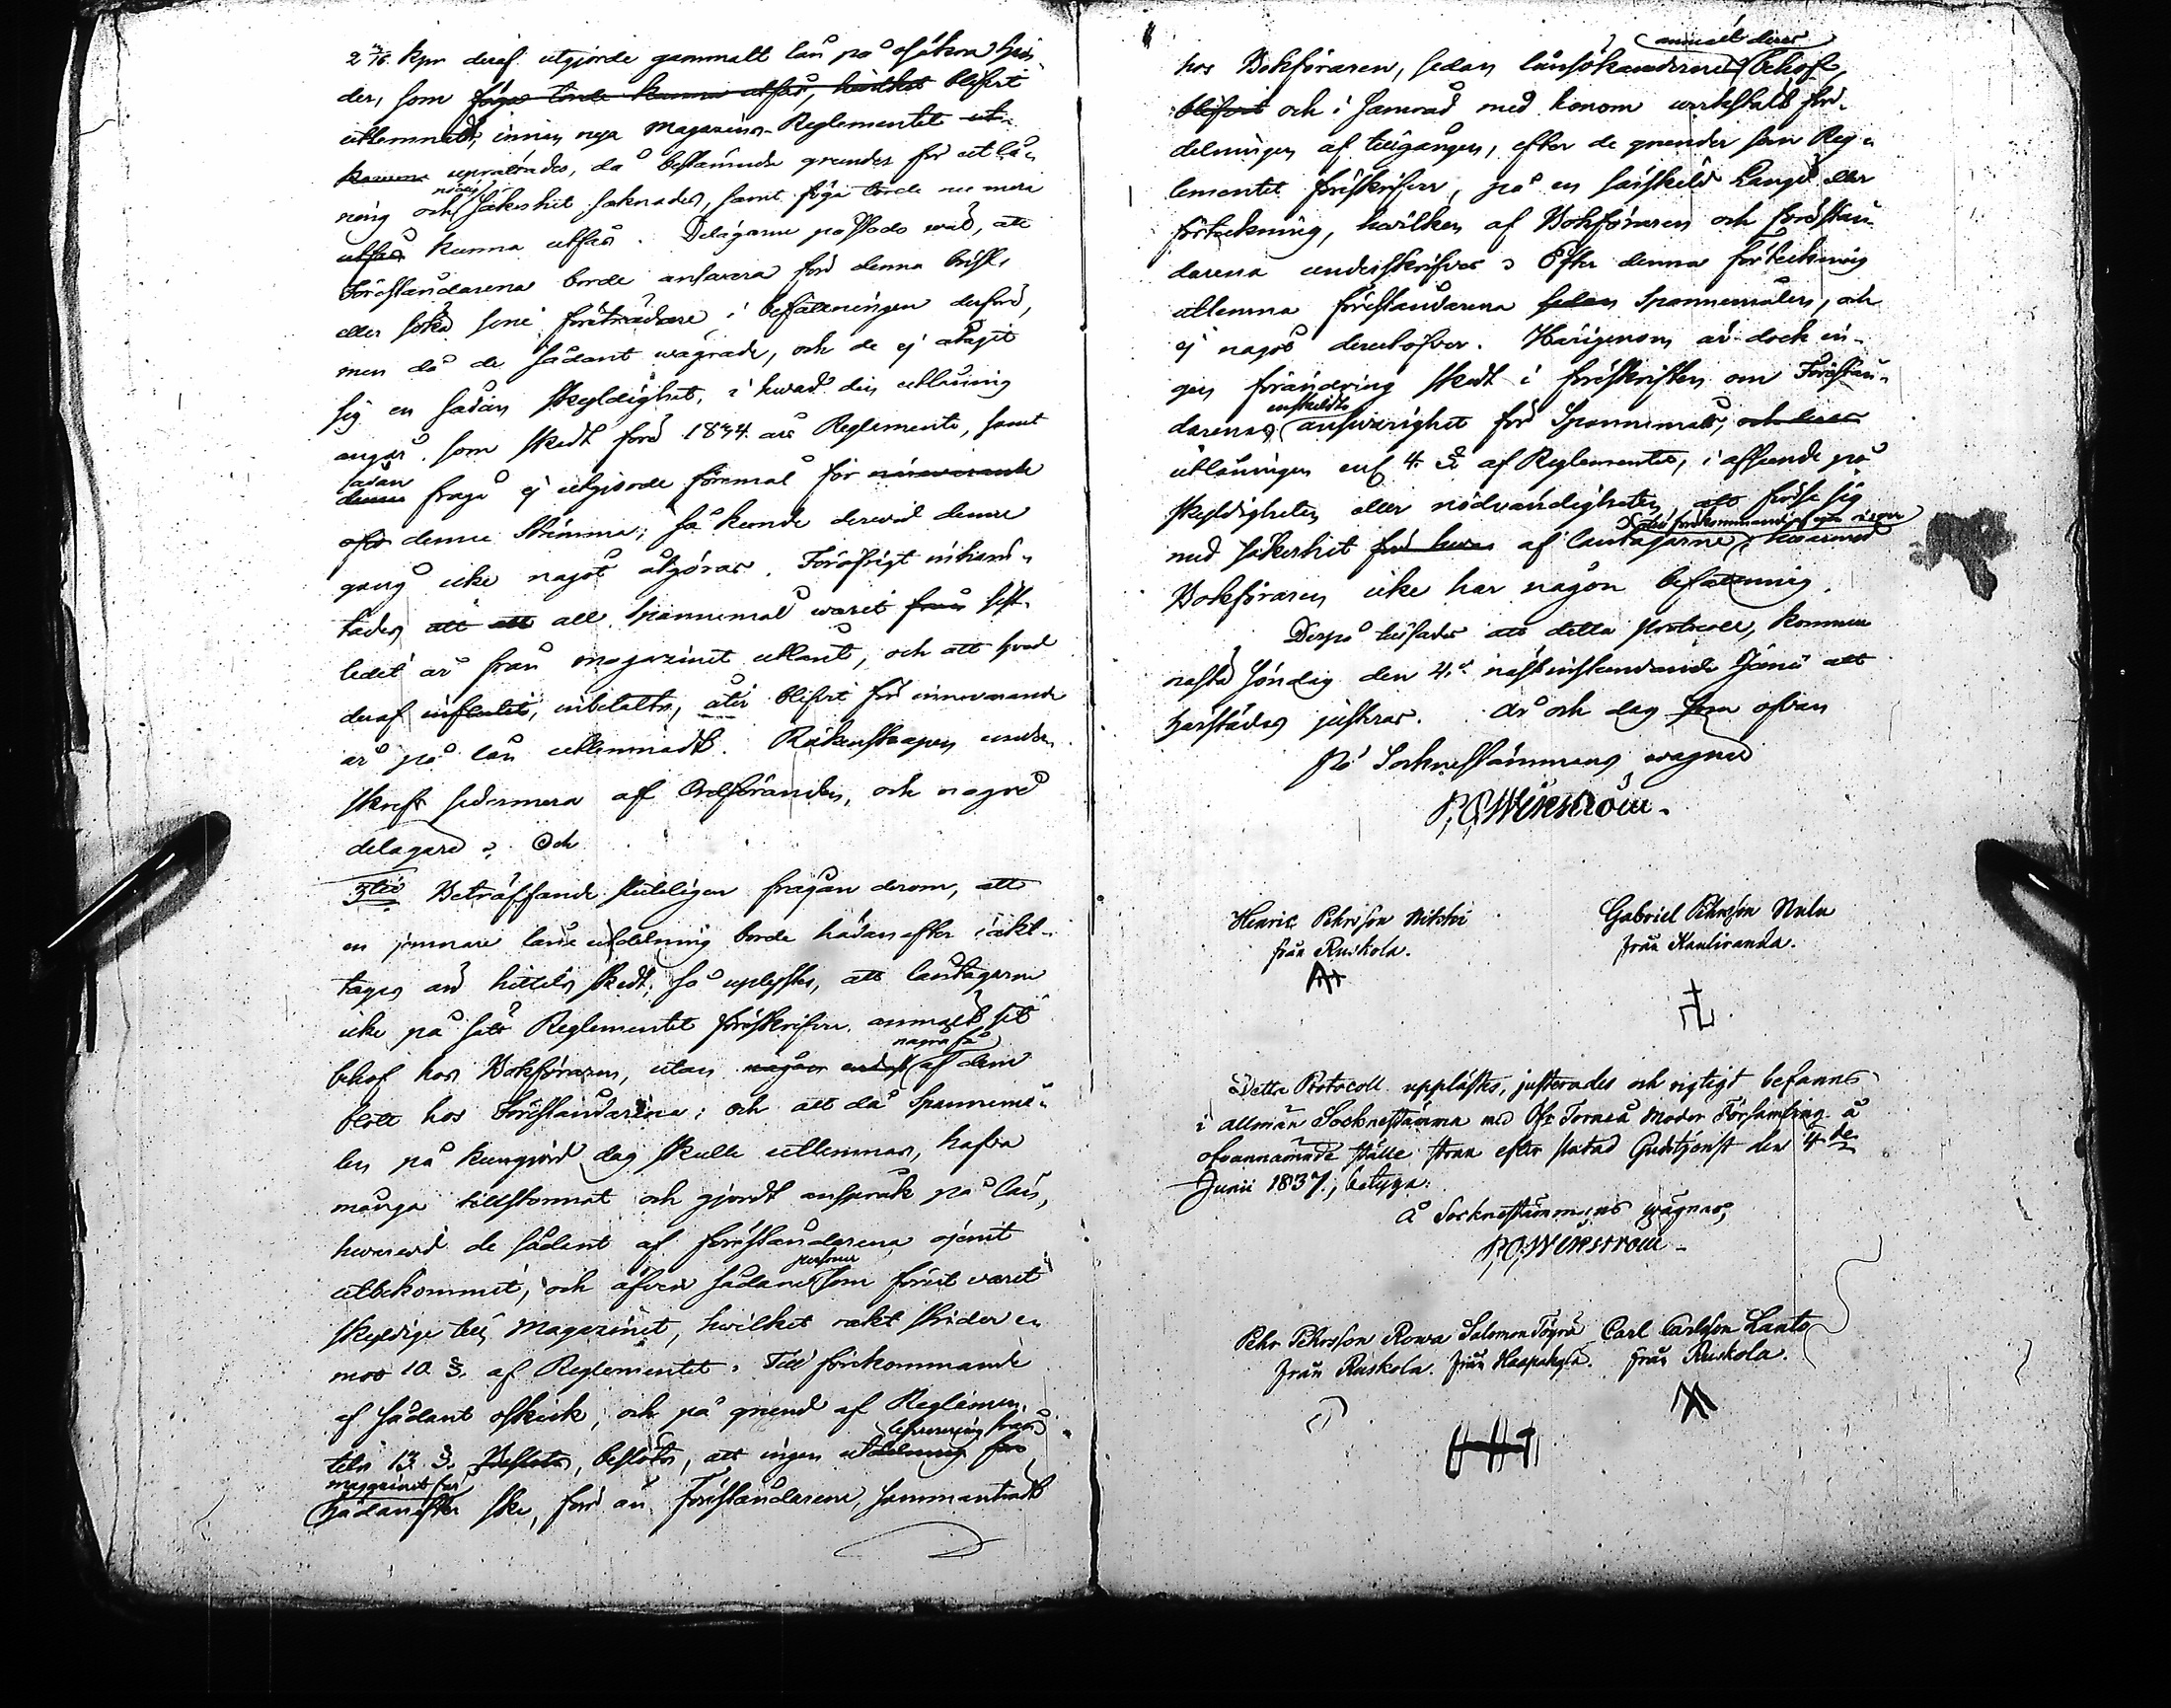 2 7/16. Kpr deraf utgjorde gammalt lån på osäkra hän-
der, som föga torde kunna utfås, hvilket blifvit
utlemnadt, innan nya Magazins-Reglementet ut-
kommit upprättades, då bestämda grunder för utlå-
ning och nödig säkerhet saknades, samt föga torde nu mera
utfås kunna utfås. Delägarne påstodo wäl, att
Föreståndarena borde answara för denna brist,
eller söka sine företrädare i befattningen derför,
men då de sådant wägrade, och de ej åtagit
sig en sådan skyldighet, i hwad den utlåning
angår, som skedt före 1834 års Reglemente, samt
denna sådan fråga ej utgjorde föremål för närwarande
denna Stämma; så kunde derwid denna
gång icke något åtgöras. Föröfrigt inhem-
tades att all Spannemål warit från sist-
ledet år från magazinet utlånt, och att hvad
deraf influtit, inbetalts, åter blifvit för innevarande
år på lån utlemnadt. Räkenskapen under-
skrefs sedermera af Ordföranden, och några
delägare. Och
3tio Beträffande sluteligen frågan derom, att
en jemnare låneutdelning borde hädanefter iakt-
tages än hittills skedt, så uplystes, att låntagarne
icke på sätt Reglementet föreskrifver anmält sit
behof hos Bokföraren, utan någon endast några få af dem
blott hos Föreståndarena; och att då Spannemå-
len på kungjord dag skulle utlemnas, hafva
många tillstommat och gjordt anspråk på lån,
hwarwid de sådant af föreståndarena ojemt
utbekommit, och äfven sådane personer som förut warit
skyldige till Magazinet, hwilket rakt strider e-
mot 10. §. af Reglementet. Till förekommande
af sådant oskick, och på grund af Reglemen-
tets 13. §. beslöts, att ingen utdelning utlevering från
magazinet får
hädanefter ske, förr än Föreståndarena, sammanträdt
hos Bokföraren, sedan lånsökanderne anmält deras behof,
blifvit och i samråd med honom werkställt för-
delningen af tillgången, efter de grunder som Reg-
lementet föreskrifver, på en särskild Längd eller
förteckning, hwilken af Bokföraren och Förestån-
darena underskrifves. Efter denna förteckning
utlemna föreståndarena sedan Spannemålen, och
ej något derutöfver. Härigenom är dock in-
gen förändring skedt i föreskriften om Förestån-
darenas enskildta answarighet för Spannemåls, och deras
utlåningen enl. 4. §. af Reglementet, i afseende på
skyldigheten eller nödvändigheten att förse sig
med säkerhet för hwar af låntagarne, hwarmed
Bokföraren icke har någon befattning.
Derpå tillsades att detta protocoll, kommer
nästa Söndag den 4.de nästinstundande Junii att
härstädes justeras. År och dag som ofvan
På Socknestämmans wägnar
P. O. Wikström.
Henric Pehrsson Niktoi
från Ruskola.
Gabriel Pehrsson Nulu
från Kauliranda.
Detta Protocoll upplästes, justerades och rigtigt befanns
i allmän Socknestämma med Öfr. Torneå Moder Församling å
ofvannämnde ställe strax efter slutad Gudstjenst den 4de
Junii 1837., betyga:
Å Socknestämmans wägnar,
P. O. Wikström.
Pehr Pehrsson Rowa Salomon Töyrä Carl Carlsson Lanto
från Ruskola. från Haapakylä. från Ruskola.